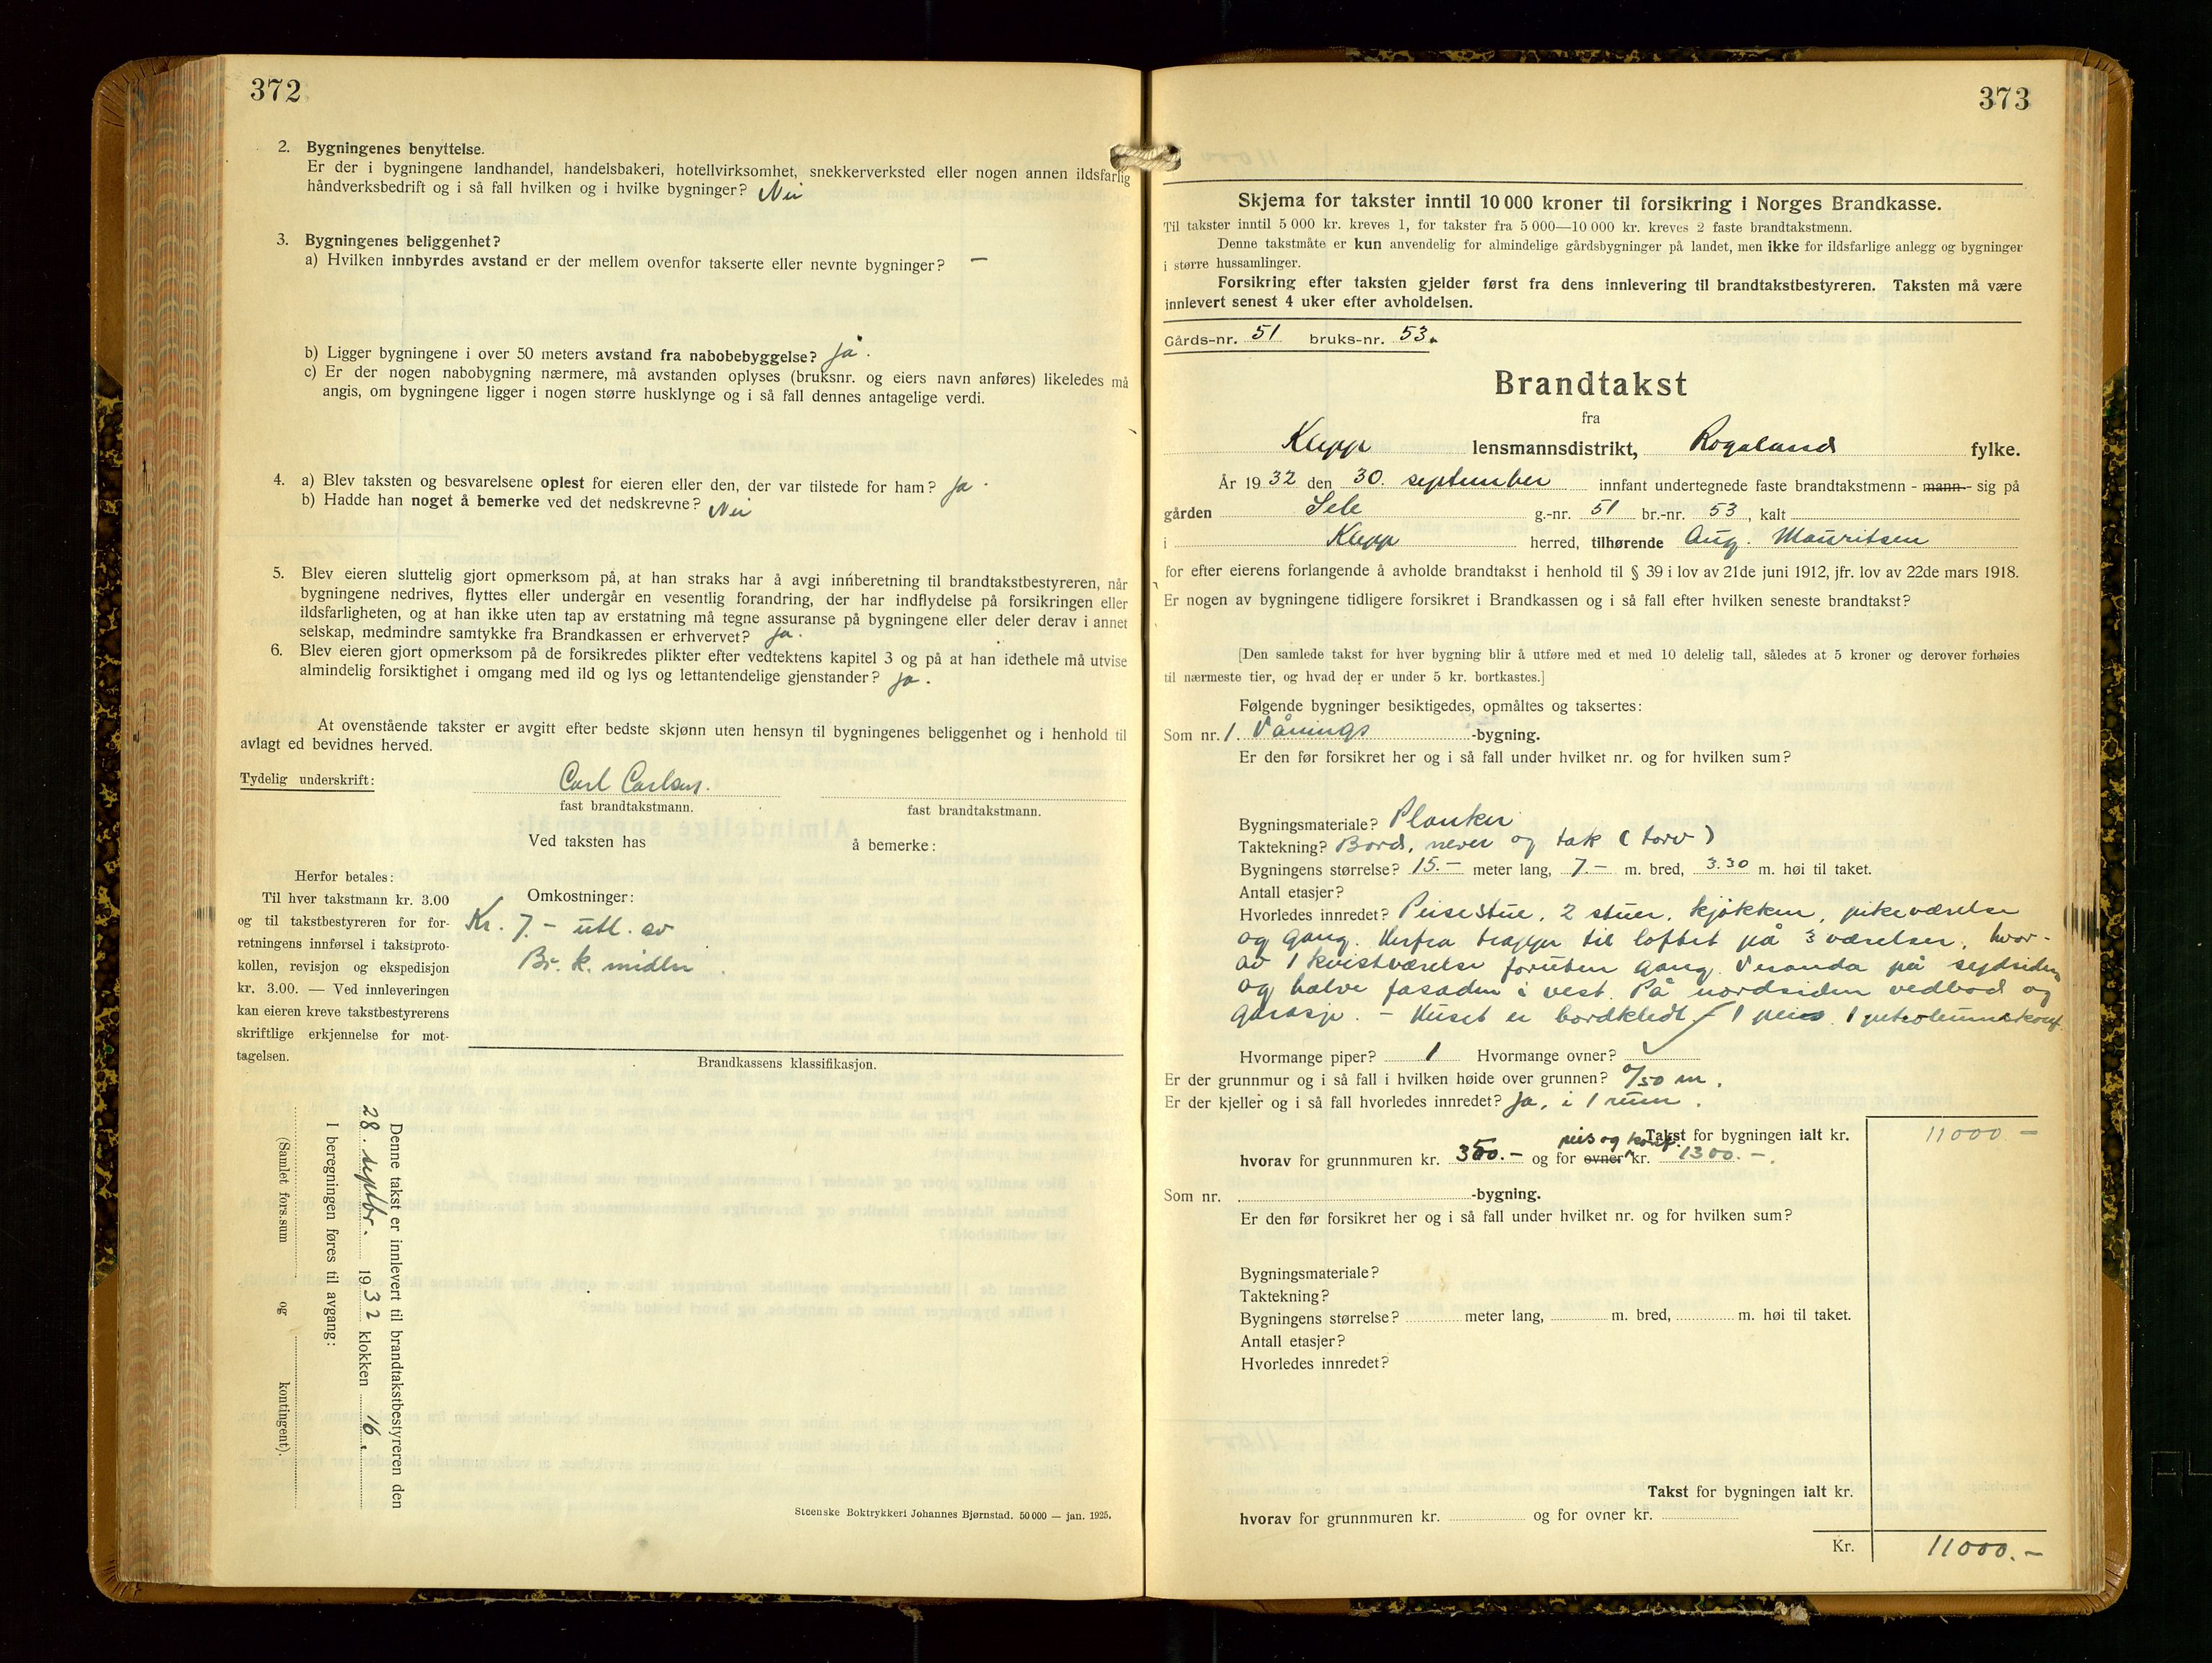 372
2. Bygningenes benyttelse.
Er der i bygningene landhandel, handelsbakeri, hotellvirksomhet, snekkerverksted eller nogen annen ildsfarlig
håndverksbedrift og i så fall hvilken og i hvilke bygninger? Nei
3. Bygningenes beliggenhet?
a) Hvilken innbyrdes avstand er der mellem ovenfor takserte eller nevnte bygninger? —
b) Ligger bygningene i over 50 meters avstand fra nabobebyggelse? Ja.
c) Er der nogen nabobygning nærmere, må avstanden oplyses (bruksnr. og eiers navn anføres) likeledes må
angis, om bygningene ligger i nogen større husklynge og i så fall dennes antagelige verdi.
4. a) Blev taksten og besvarelsene oplest for eieren eller den, der var tilstede for ham? Ja.
b) Hadde han noget å bemerke ved det nedskrevne? Nei
5. Blev eieren sluttelig gjort opmerksom på, at han straks har å avgi innberetning til brandtakstbestyreren, når
bygningene nedrives, flyttes eller undergår en vesentlig forandring, der har indflydelse på forsikringen eller
ildsfarligheten, og at han ikke uten tap av erstatning må tegne assuranse på bygningene eller deler derav i annet
selskap, medmindre samtykke fra Brandkassen er erhvervet? Ja.
6. Blev eieren gjort opmerksom på de forsikredes plikter efter vedtektens kapitel 3 og på at han idethele må utvise
almindelig forsiktighet i omgang med ild og lys og lettantendelige gjenstander? Ja.
At ovenstående takster er avgitt efter bedste skjønn uten hensyn til bygningenes beliggenhet og i henhold til
avlagt ed bevidnes herved.
Tydelig underskrift: Carl Carlsen.
fast brandtakstmann. fast brandtakstmann.
Ved taksten has å bemerke:
Herfor betales:
Til hver takstmann kr. 3.00
og til takstbestyreren for for-
retningens innførsel i takstproto-
kollen, revisjon og ekspedisjon
kr. 3.00. — Ved innleveringen
kan eieren kreve takstbestyrerens
skriftlige erkjennelse for mot-
tagelsen.
Omkostninger:
Kr. 7.- utl. av
Br. k. midler.
Brandkassens klassifikasjon.
Denne takst er innlevert til brandtakstbestyreren den
28. septbr. 1932 klokken 16.
I beregningen føres til avgang:
(Samlet fors.sum og kontingent).
Steenske Boktrykkeri Johannes Bjørnstad. 50 000 — jan. 1925.
373
Skjema for takster inntil 10 000 kroner til forsikring i Norges Brandkasse.
Til takster inntil 5 000 kr. kreves 1, for takster fra 5 000—10 000 kr. kreves 2 faste brandtakstmenn.
Denne takstmåte er kun anvendelig for almindelige gårdsbygninger på landet, men ikke for ildsfarlige anlegg og bygninger
i større hussamlinger.
Forsikring efter taksten gjelder først fra dens innlevering til brandtakstbestyreren. Taksten må være
innlevert senest 4 uker efter avholdelsen.
Gårds-nr. 51 bruks-nr. 53.
Brandtakst
fra
Klepp lensmannsdistrikt, Rogaland fylke.
År 1932 den 30. september innfant undertegnede faste brandtakstmenn - mann - sig på
gården Sele g.-nr. 51 br.-nr. 53, kalt
i Klepp herred, tilhørende Aug. Mauritsen
for efter eierens forlangende å avholde brandtakst i henhold til § 39 i lov av 21de juni 1912, jfr. lov av 22de mars 1918.
Er nogen av bygningene tidligere forsikret i Brandkassen og i så fall efter hvilken seneste brandtakst?
[Den samlede takst for hver bygning blir å utføre med et med 10 delelig tall, således at 5 kroner og derover forhøies
til nærmeste tier, og hvad der er under 5 kr. bortkastes.]
Følgende bygninger besiktigedes, opmåltes og taksertes:
Som nr. 1. Vånings -bygning.
Er den før forsikret her og i så fall under hvilket nr. og for hvilken sum?
Bygningsmateriale? Planker
Taktekning? Bord, never og tak (torv)
Bygningens størrelse? 15.- meter lang, 7.- m. bred, 3.30 m. høi til taket.
Antall etasjer?
Hvorledes innredet? Peisestue, 2 stuer, kjøkken, pikeværelse
og gang. Herfra trapper til loftet på 3 værelser, hvor-
av 1 kvistværelse foruten gang. Veranda på sydsiden
og halve fasaden i vest. På nordsiden vedbod og
garasje. - Huset er bordkledt - 1 peis. 1 petroleumskomf.
Hvormange piper? 1 Hvormange ovner?
Er der grunnmur og i så fall i hvilken høide over grunnen? 0/50 m.
Er der kjeller og i så fall hvorledes innredet? Ja, i 1 rum.
Takst for bygningen ialt kr. 11000 -
peis og komf.
hvorav for grunnmuren kr. 350.- og for ovner kr. 1300.-.
Som nr. -bygning.
Er den før forsikret her og i så fall under hvilket nr. og for hvilken sum?
Bygningsmateriale?
Taktekning?
Bygningens størrelse? meter lang, m. bred, m. høi til taket.
Antall etasjer?
Hvorledes innredet?
Takst for bygningen ialt kr.
hvorav for grunnmuren kr. og for ovner kr.
Kr. 11000.-